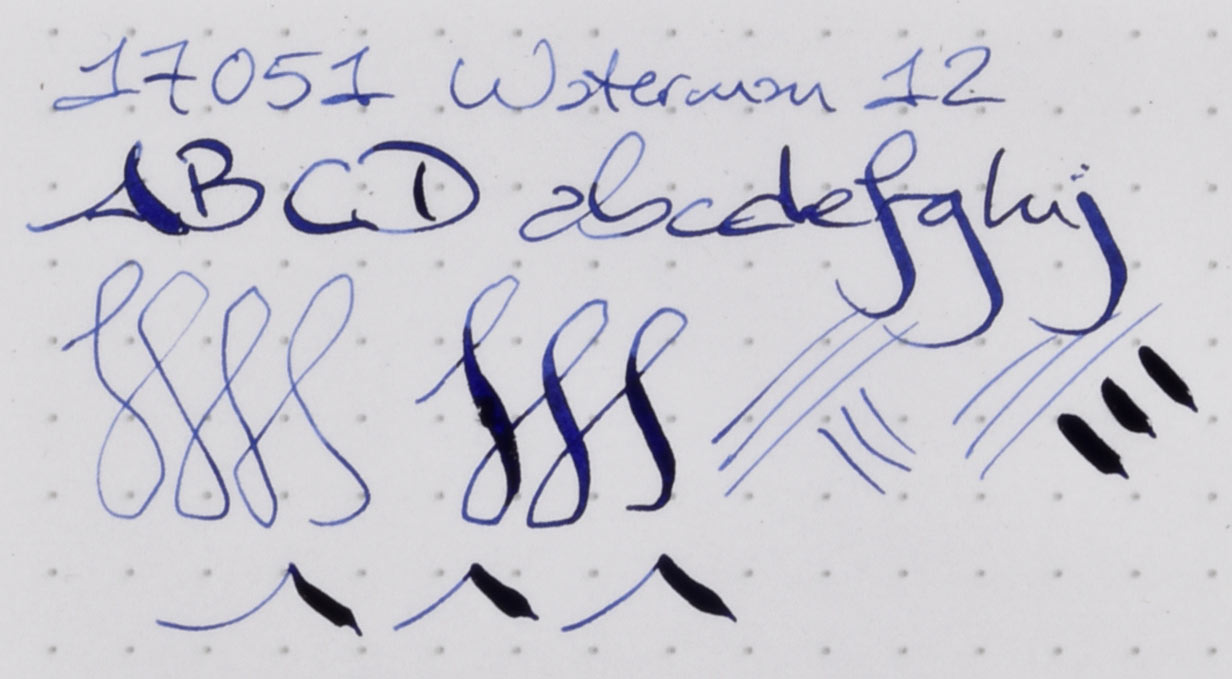 17051 Waterman 12
ABCD abcdefghij